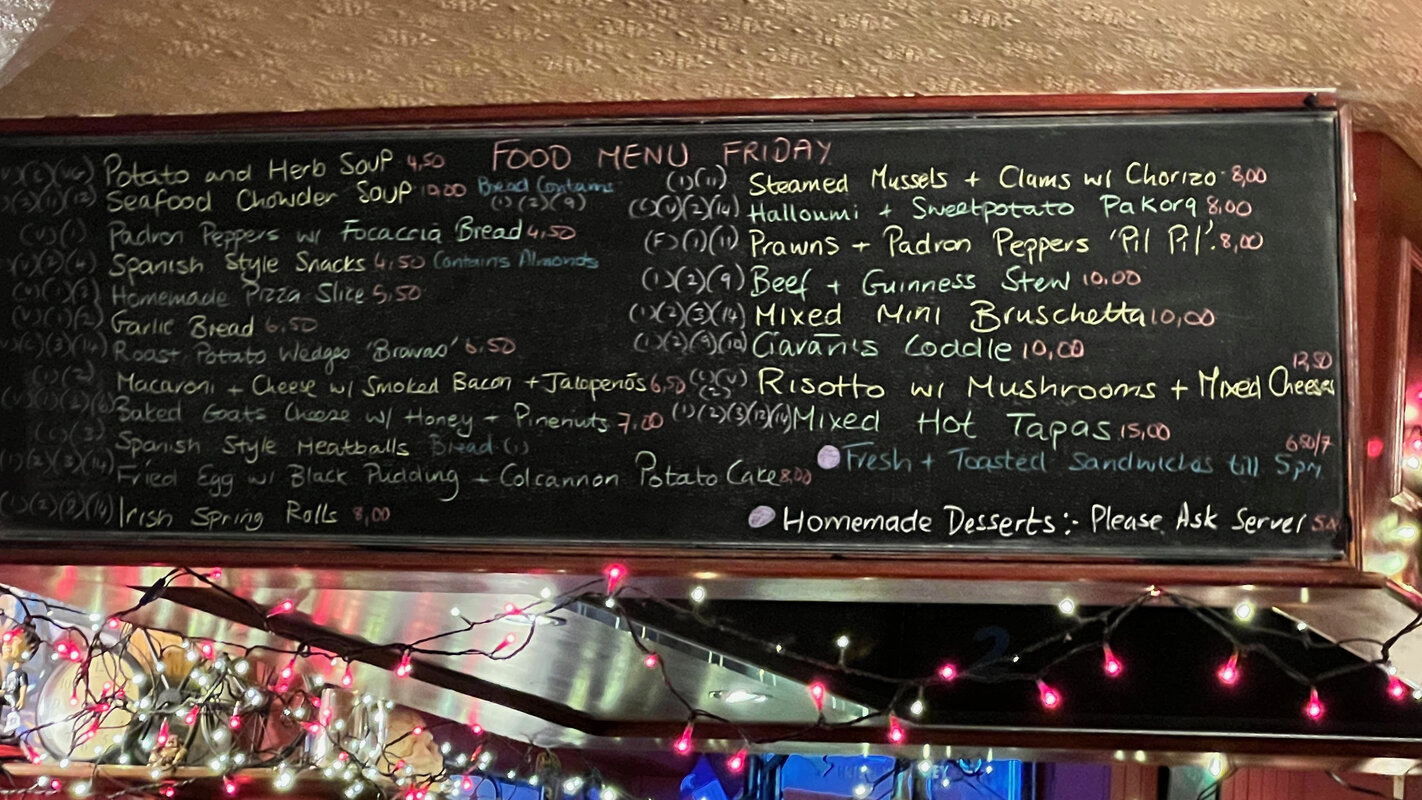 FOOD MENU FRIDAY
Potato and Herb Soup 4,50
Seafood Chowder Soup 10,00 Bread Contains (1)(2)(9)
Padron Peppers w/ Focaccia Bread 4,50
Spanish Style Snacks 4,50 Contains Almonds
Homemade Pizza Slice 5,50
Garlic Bread 6,50
Roast Potato Wedges 'Bravas' 6,50
Macaroni + Cheese w/ Smoked Bacon + Jalapenõs 6,50
Baked Goats Cheese w/ Honey + Pinenuts 7,00
Spanish Style Meatballs Bread (1)
Fried Egg w/ Black Pudding + Colcannon Potato Cake 8,00
Irish Spring Rolls 8,00
(1)(11) Steamed Mussels + Clams w/ Chorizo 8,00
Halloumi + Sweetpotato Pakora 8,00
(F)(1)(11) Prawns + Padron Peppers 'Pil Pil'. 8,00
(1)(2)(9) Beef + Guinness Stew 10,00
(1)(2)(3)(14) Mixed Mini Bruschetta 10,00
Coddle 10,00
Risotto w/ Mushrooms + Mixed Cheeses 12,50
(1)(2)(3)(12)(14) Mixed Hot Tapas 15,00
Fresh + Toasted Sandwiches till 5pm 6.50/7
Homemade Desserts:- Please Ask Server